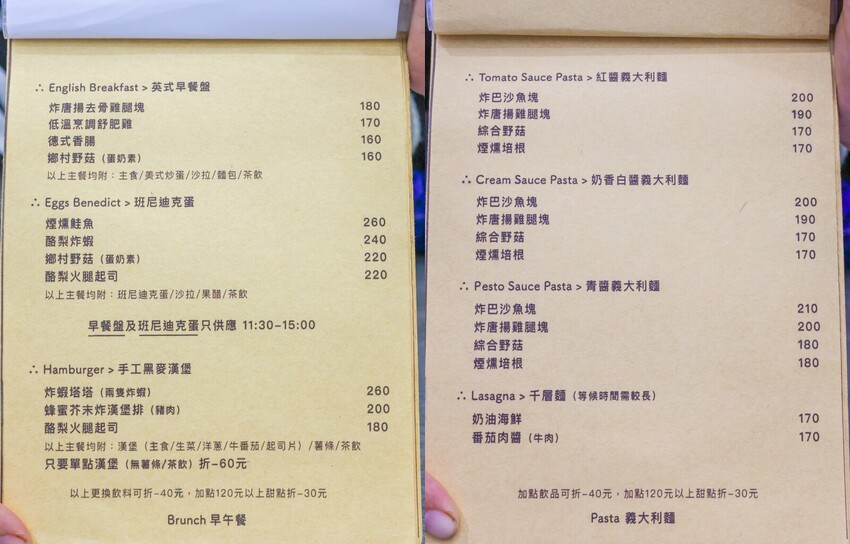 ∴ English Breakfast > 英式早餐盤
炸唐揚去骨雞腿塊 180
低溫烹調舒肥雞 170
德式香腸 160
鄉村野菇（蛋奶素） 160
以上主餐均附：主食/美式炒蛋/沙拉/麵包/茶飲
∴ Eggs Benedict > 班尼迪克蛋
煙燻鮭魚 260
酪梨炸蝦 240
鄉村野菇（蛋奶素） 220
酪梨火腿起司 220
以上主餐均附：班尼迪克蛋/沙拉/果醋/茶飲
早餐盤及班尼迪克蛋只供應 11:30-15:00
∴ Hamburger > 手工黑麥漢堡
炸蝦塔塔（兩隻炸蝦） 260
蜂蜜芥末炸漢堡排（豬肉） 200
酪梨火腿起司 180
以上主餐均附：漢堡（主食/生菜/洋蔥/牛番茄/起司片）/薯條/茶飲
只要單點漢堡（無薯條/茶飲）折-60元
以上更換飲料可折-40元，加點120元以上甜點折-30元
Brunch 早午餐
∴ Tomato Sauce Pasta > 紅醬義大利麵
炸巴沙魚塊 200
炸唐揚雞腿塊 190
綜合野菇 170
煙燻培根 170
∴ Cream Sauce Pasta > 奶香白醬義大利麵
炸巴沙魚塊 200
炸唐揚雞腿塊 190
綜合野菇 170
煙燻培根 170
∴ Pesto Sauce Pasta > 青醬義大利麵
炸巴沙魚塊 210
炸唐揚雞腿塊 200
綜合野菇 180
煙燻培根 180
∴ Lasagna > 千層麵（等候時間需較長）
奶油海鮮 170
番茄肉醬（牛肉） 170
加點飲品可折-40元，加點120元以上甜點折-30元
Pasta 義大利麵